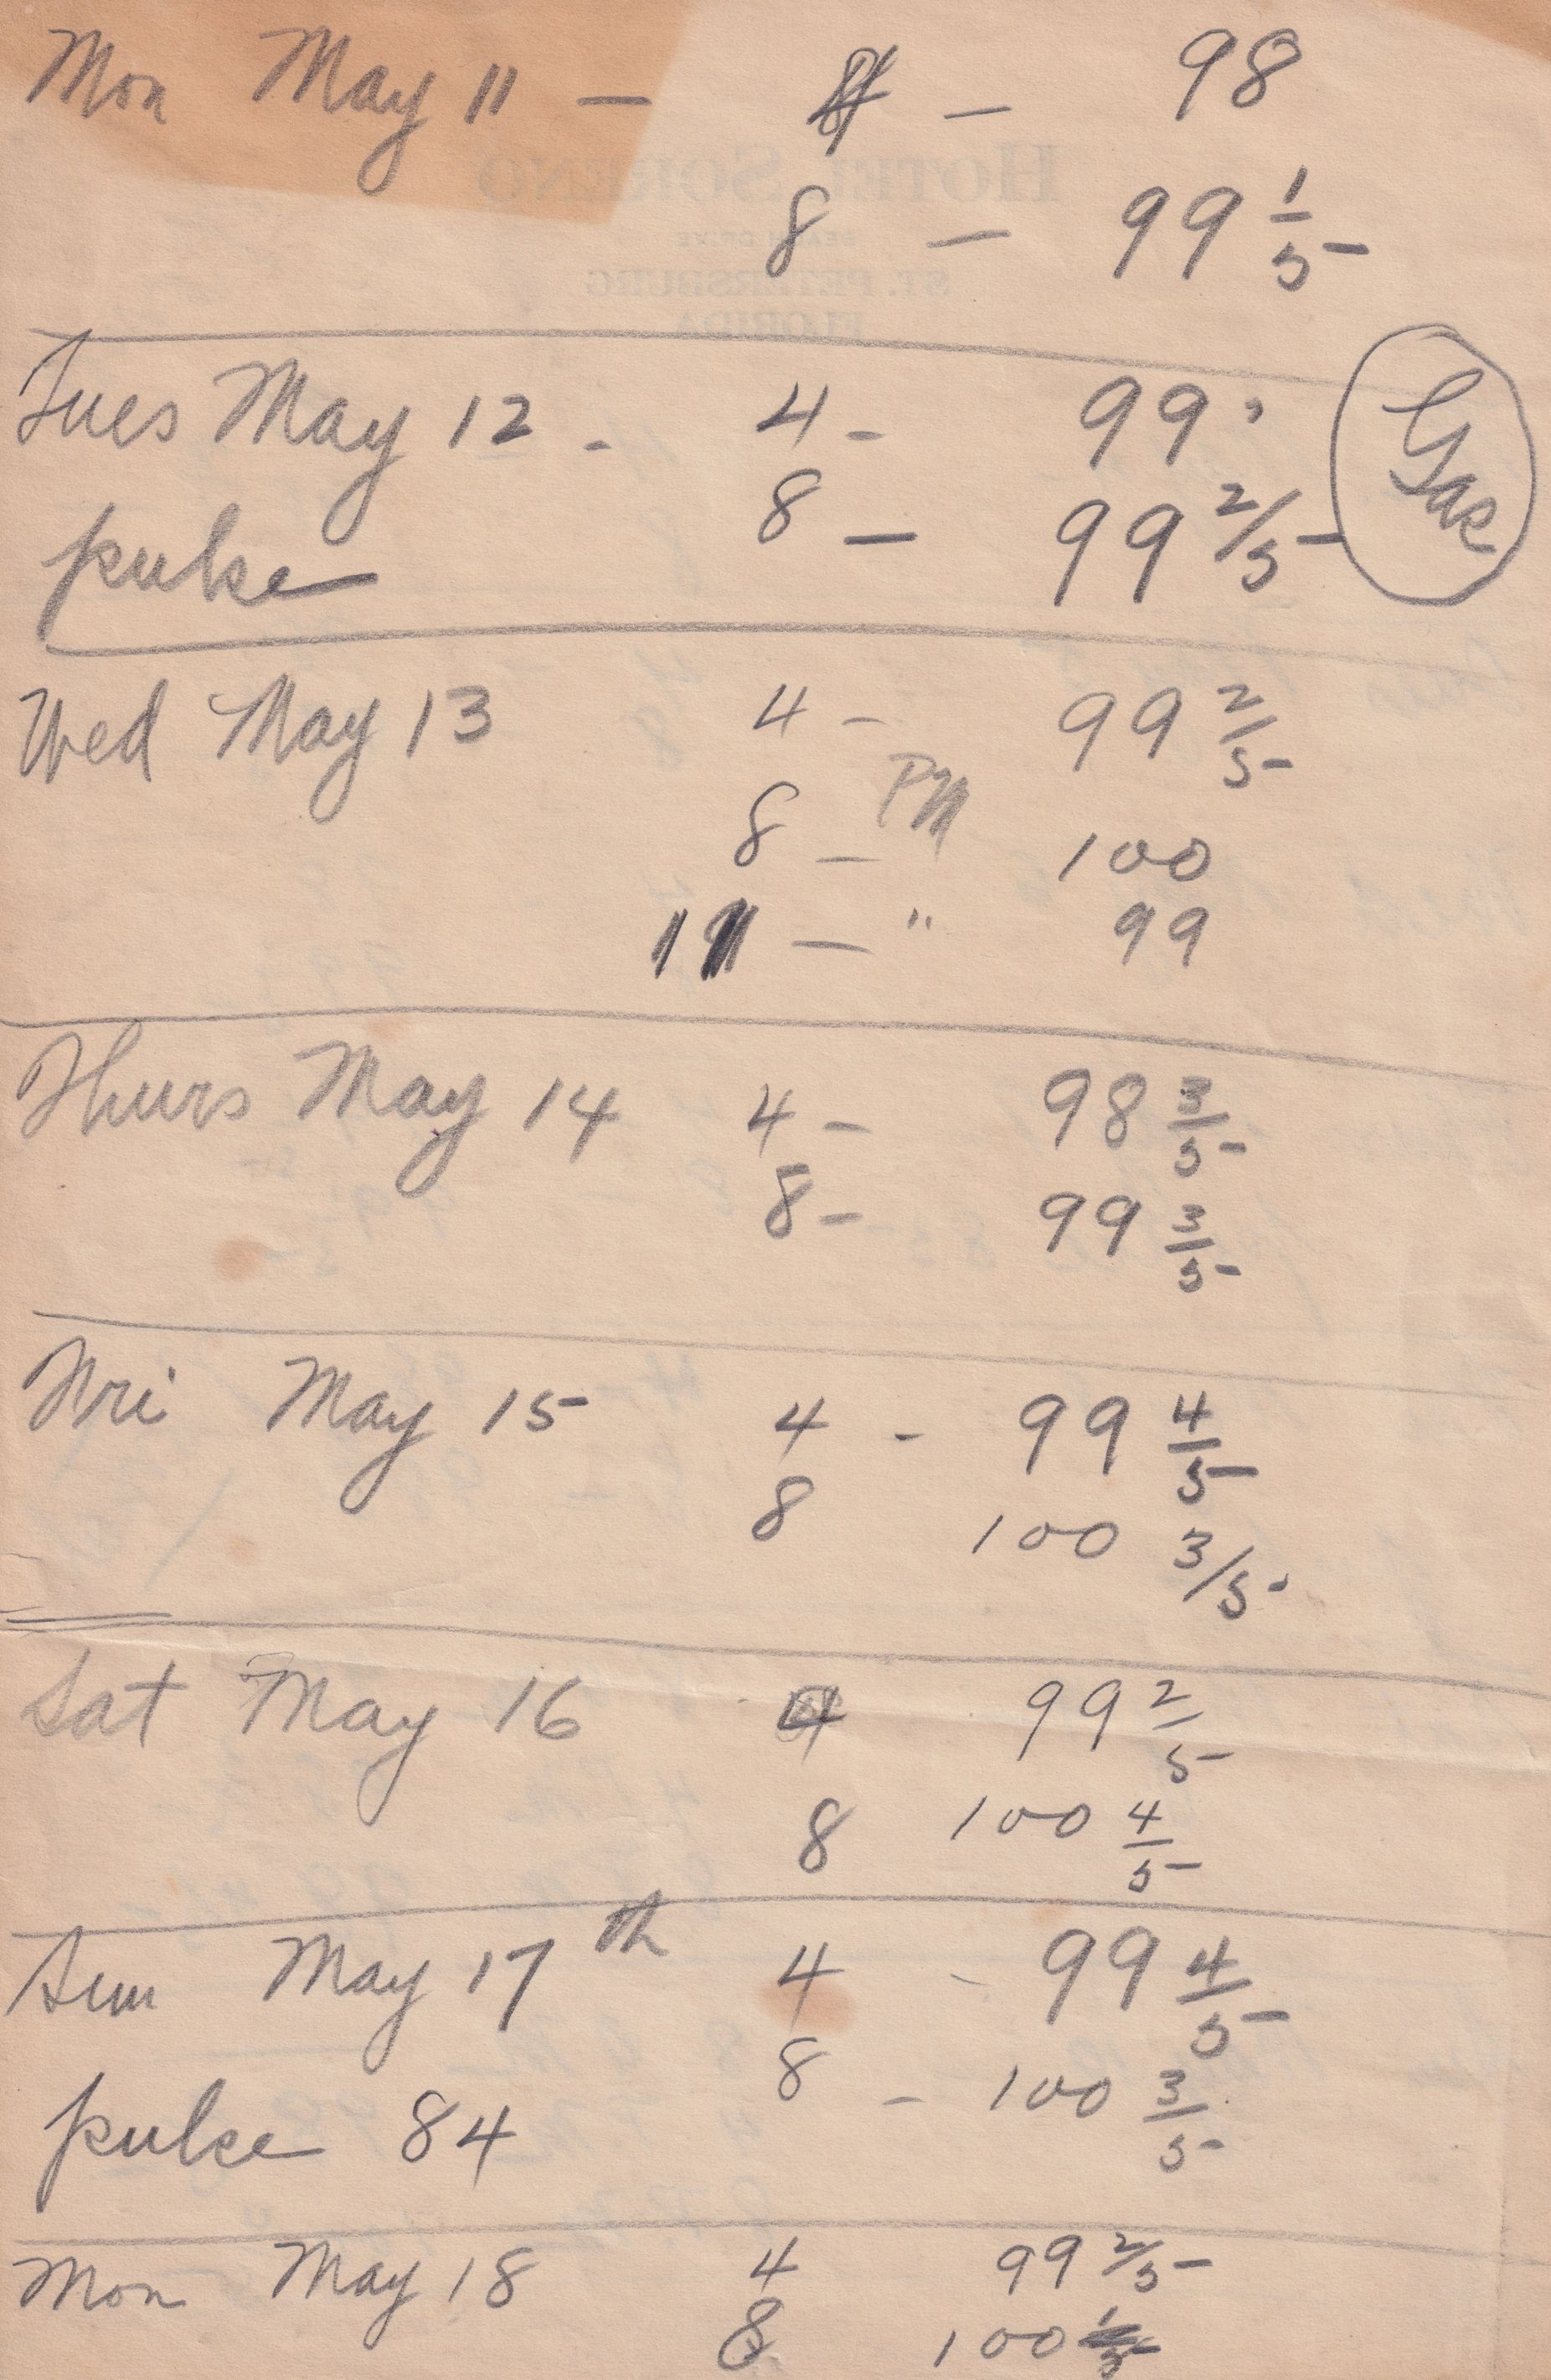 Mon May 11 — 4 — 98
8 — 99 1/5
HOTEL SORENO
BEACH DRIVE
ST. PETERSBURG
FLORIDA
Tues May 12 - 4 - 99
Gas
pulse 8 — 99 2/5
Wed May 13 4 - 99 2/5
8 — PM 100
11 — " 99
Thurs May 14 4 - 98 3/5
8 - 99 3/5
Fri May 15 4 - 99 4/5
8 100 3/5
Sat May 16 4 99 2/5
8 100 4/5
Sun May 17th 4 - 99 4/5
8 - 100 3/5
pulse 84
Mon May 18 4 99 2/5
8 100